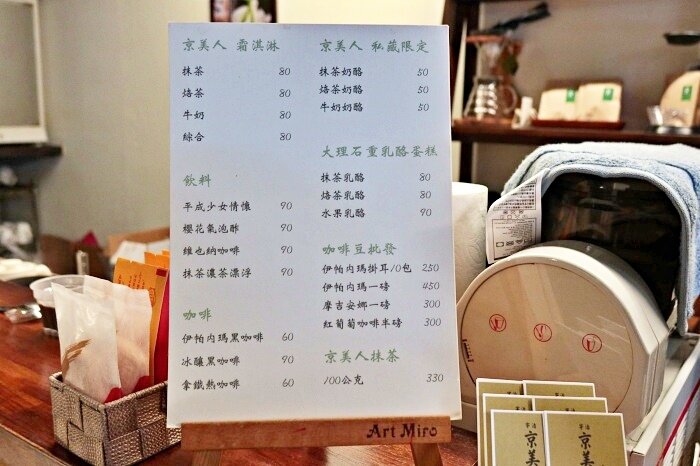 京美人 霜淇淋
抹茶 80
焙茶 80
牛奶 80
綜合 80
飲料
平成少女情懷 90
櫻花氣泡酢 90
維也納咖啡 90
抹茶濃茶漂浮 90
咖啡
伊帕內瑪黑咖啡 60
冰釀黑咖啡 90
拿鐵熱咖啡 60
京美人 私藏限定
抹茶奶酪 50
焙茶奶酪 50
牛奶奶酪 50
大理石重乳酪蛋糕
抹茶乳酪 80
焙茶乳酪 80
水果乳酪 90
咖啡豆批發
伊帕內瑪掛耳/10包 250
伊帕內瑪一磅 450
摩吉安娜一磅 300
紅葡萄咖啡半磅 300
京美人抹茶
100公克 330
Art Miro
宇治
京
宇治
京美